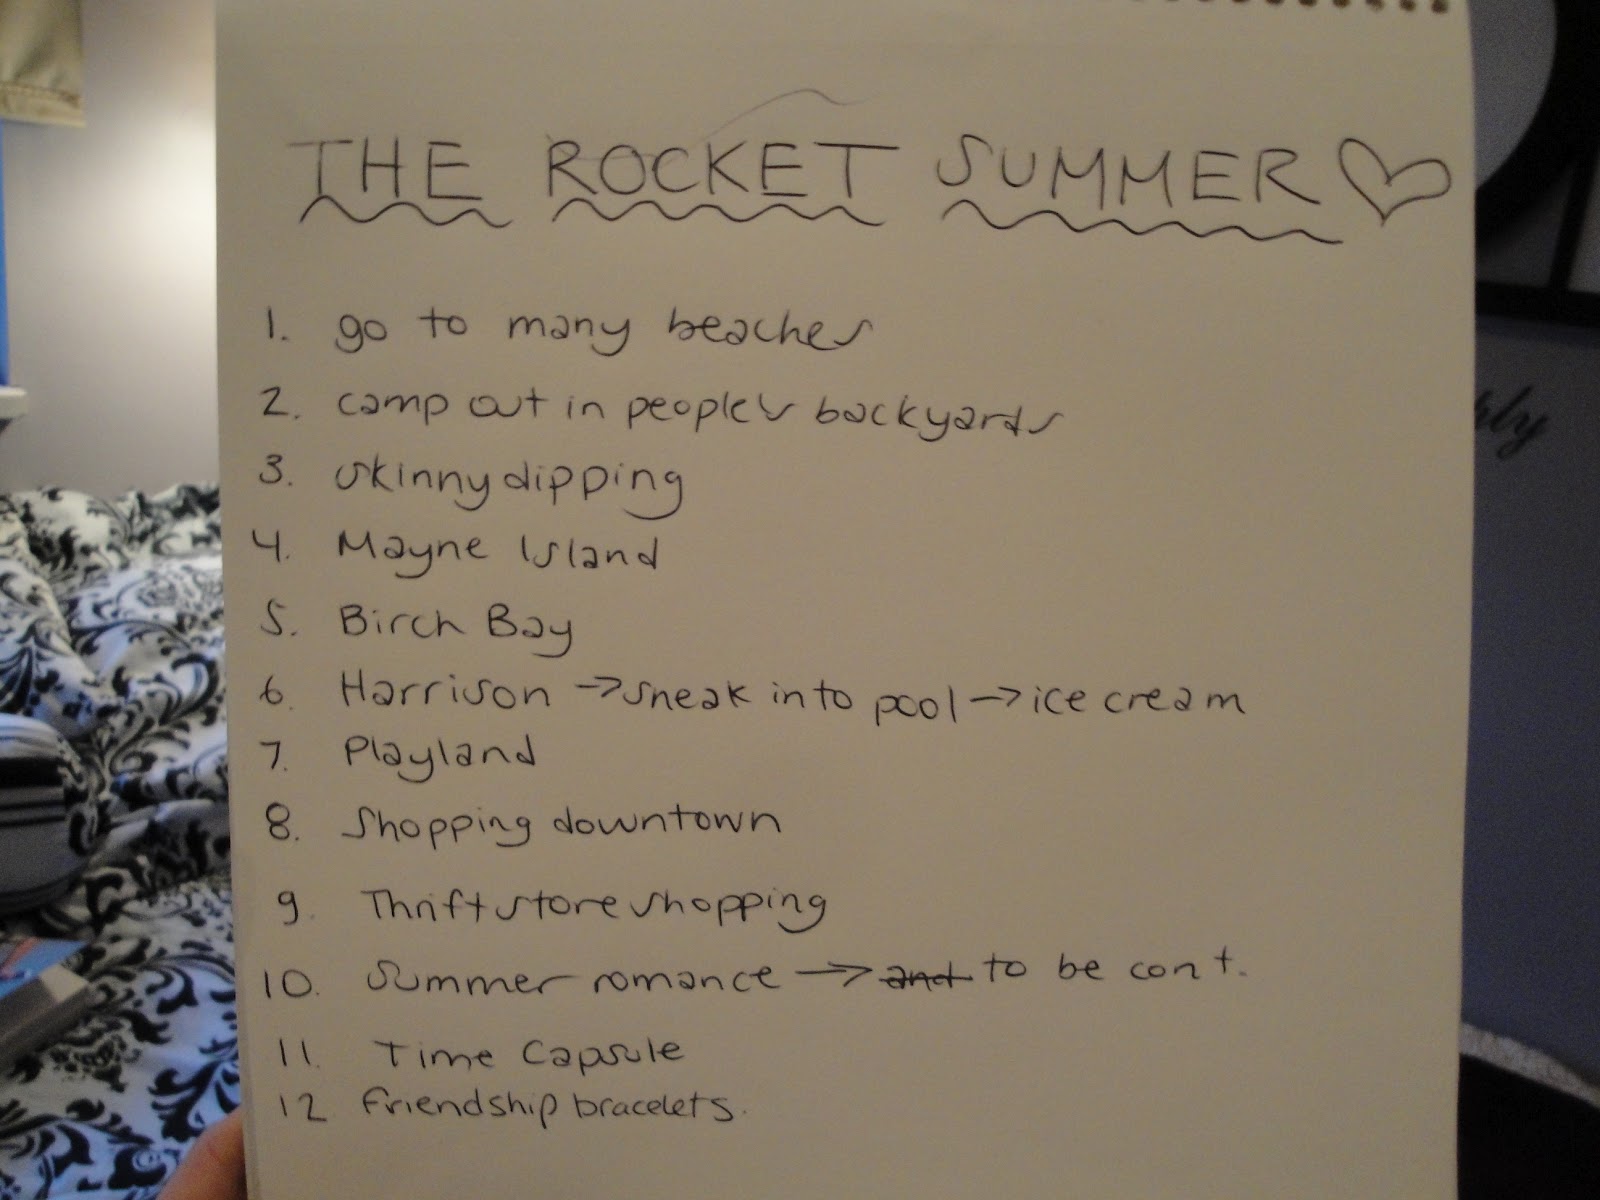 THE ROCKET SUMMER
1. go to many beaches
2. camp out in people's backyards
3. skinny dipping
4. Mayne Island
5. Birch Bay
6. Harrison → sneak into pool → ice cream
7. Playland
8. Shopping downtown
9. Thrift store shopping
10. Summer romance → and to be cont.
11. Time Capsule
12 friendship bracelets.